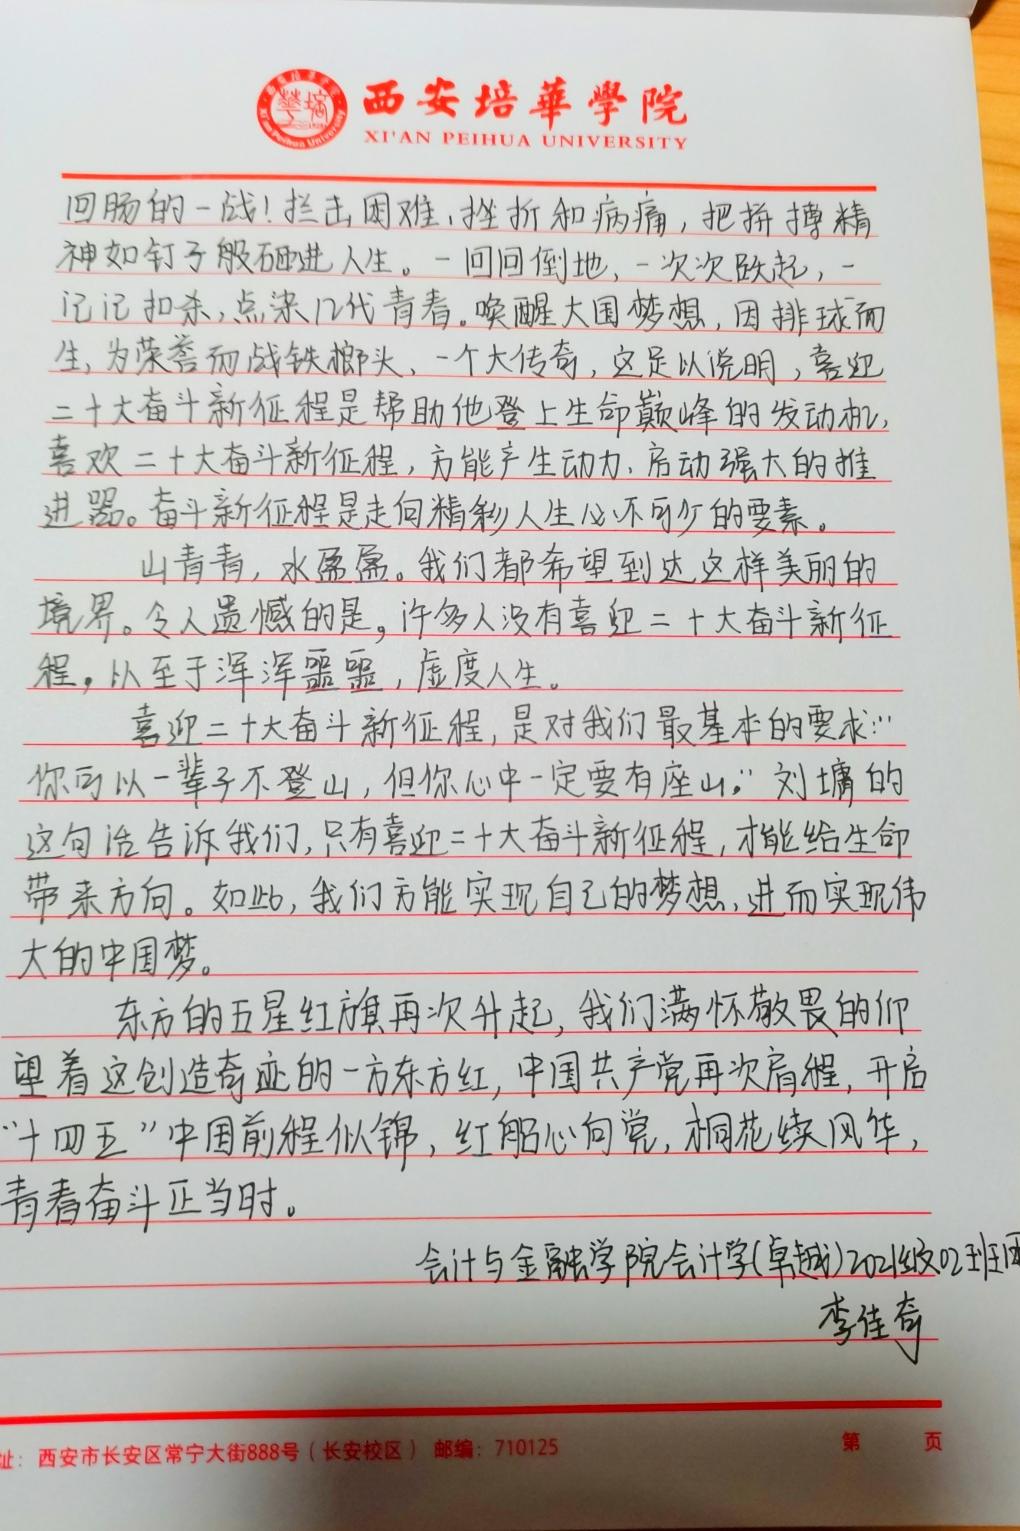 西安培華學院
XI'AN PEIHUA UNIVERSITY
Xi'an Peihua University
回肠的一战!拦击困难、挫折和病痛,把拼搏精
神如钉子般砸进人生。一回回倒地,一次次跃起,一
记记扣杀,点染几代青春。唤醒大国梦想,因排球而
生,为荣誉而战铁榔头,一个大传奇,这足以说明,喜迎
二十大奋斗新征程是帮助他登上生命巅峰的发动机,
喜欢二十大奋斗新征程,方能产生动力、启动强大的推
进器。奋斗新征程是走向精彩人生必不可少的要素。
山青青,水盈盈。我们都希望到达这样美丽的
境界。令人遗憾的是,许多人没有喜迎二十大奋斗新征
程,以至于浑浑噩噩,虚度人生。
喜迎二十大奋斗新征程,是对我们最基本的要求:“
你可以一辈子不登山,但你心中一定要有座山。”刘墉的
这句话告诉我们,只有喜迎二十大奋斗新征程,才能给生命
带来方向。如此,我们方能实现自己的梦想,进而实现伟
大的中国梦。
东方的五星红旗再次升起,我们满怀敬畏的仰
望着这创造奇迹的一方东方红,中国共产党再次启程,开启
“十四五”中国前程似锦,红船心向党,桐花续风华,
青春奋斗正当时。
会计与金融学院会计学(卓越)2021级02班团
李佳奇
址:西安市长安区常宁大街888号(长安校区) 邮编:710125
第 页